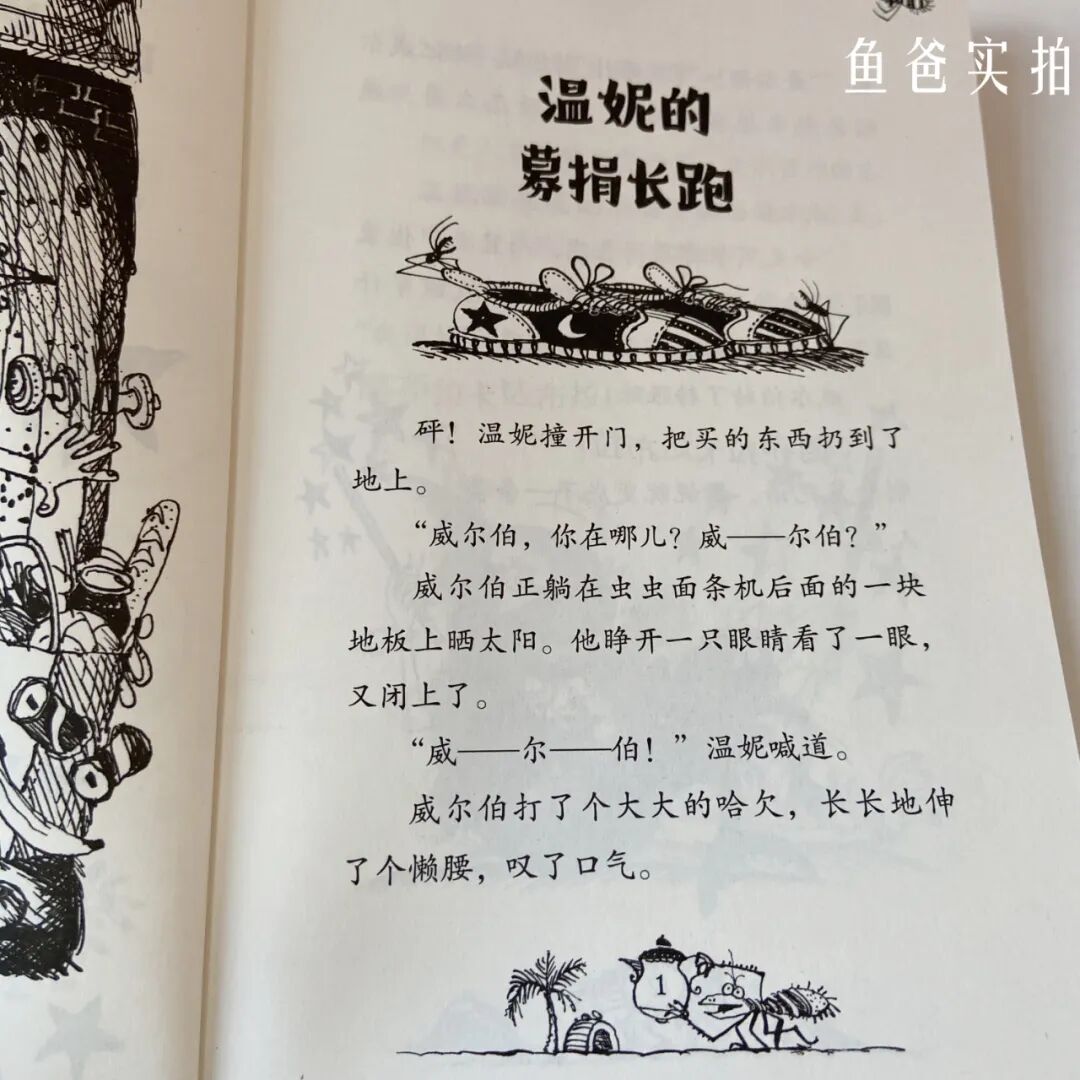 鱼爸实拍
温妮的
募捐长跑
砰！温妮撞开门，把买的东西扔到了
地上。
“威尔伯，你在哪儿？威——尔伯？”
威尔伯正躺在虫虫面条机后面的一块
地板上晒太阳。他睁开一只眼睛看了一眼，
又闭上了。
“威——尔——伯！”温妮喊道。
威尔伯打了个大大的哈欠，长长地伸
了个懒腰，叹了口气。
1